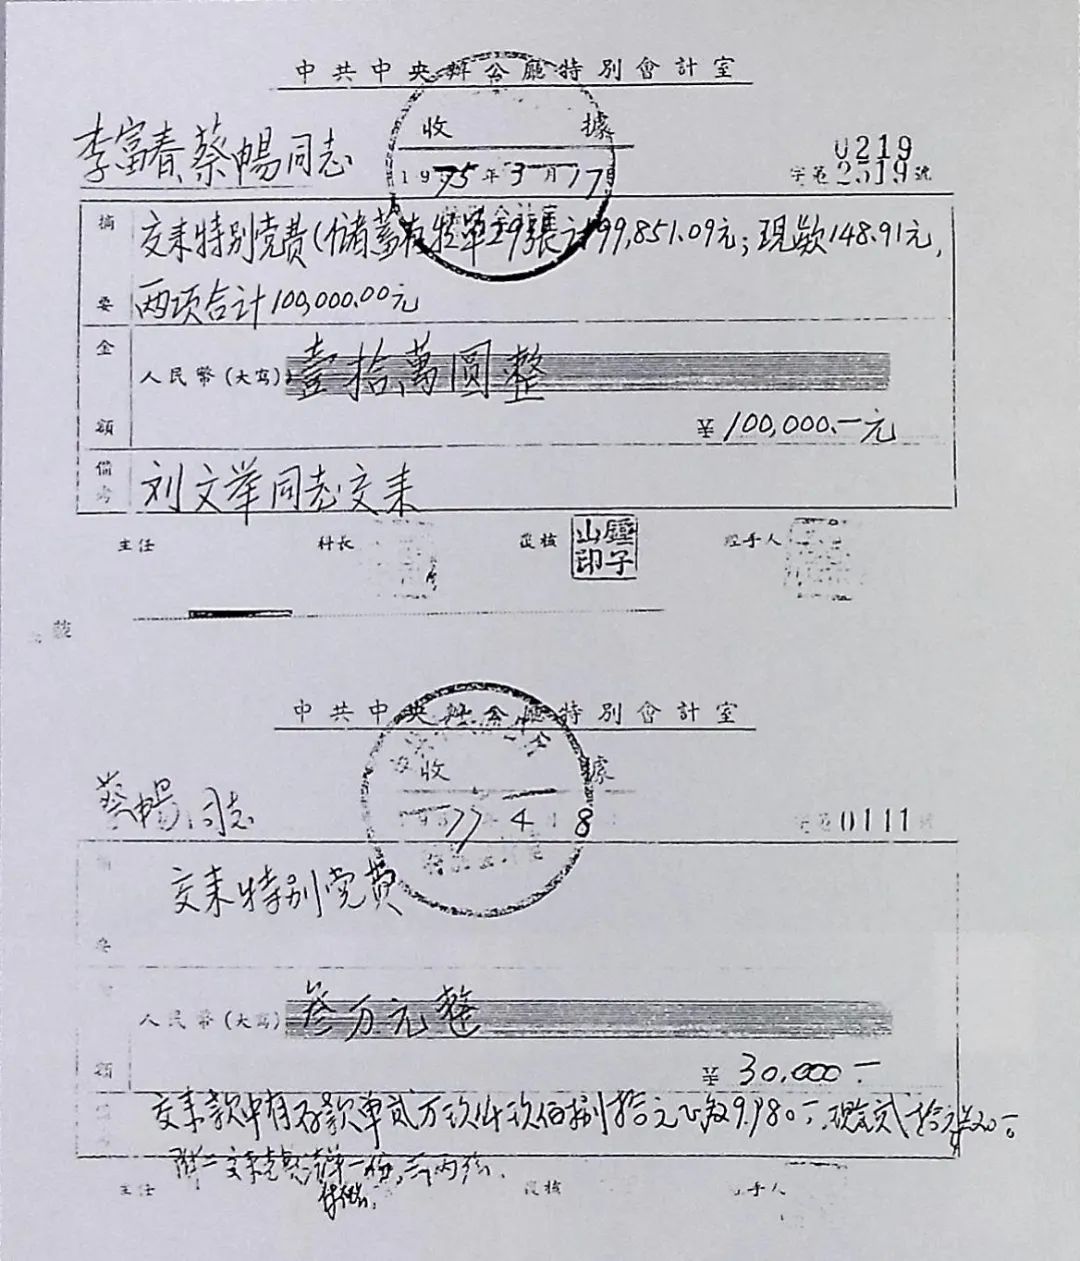 中共中央辦公廳特別會計室
收據
李富春蔡暢同志
1975年3月17日
0219
字第2519號
摘要
交来特别党费(储蓄存贮单29張计99,851.09元;現款148.91元,
两项合计100,000.00元
金額
人民幣(大寫)壹拾萬圓整
¥100,000.一元
備考
刘文举同志交来
主任 科長 覆核 經手人
中共中央辦公廳特別會計室
收據
蔡暢同志
77 4 8
字第0111號
交来特别党费
要
人民幣(大寫)叁万元整
額
¥30,000一
交来款中有存款单貳万玖仟玖佰捌拾元
主任 覆核 經手人